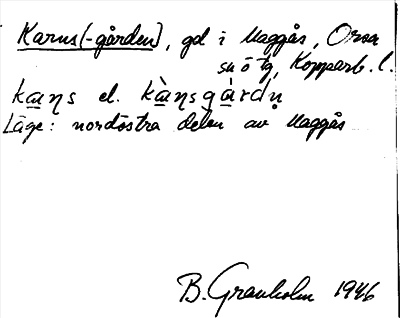 Karns (-gården), gd i Maggås, Orsa
sn ö tg, Kopparb. l.
ka̲ŋs el. kàŋsgàrdn̥
Läge: nordöstra delen av Maggås
B. Granholm 1946